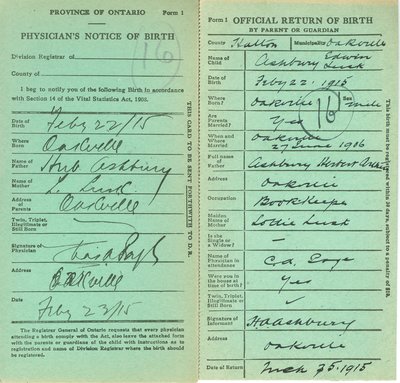 PROVINCE OF ONTARIO Form 1
PHYSICIAN'S NOTICE OF BIRTH
Division Registrar of
16
County of
I beg to notify you of the following Birth in accordance
with Section 14 of the Vital Statistics Act, 1908.
Date of Birth Feby 22/15
Where Born Oakville
Name of Father Hub. Ashbury
Name of Mother L. Lusk
Address of Parents Oakville
Twin, Triplet, Illegitimate or Still Born
Signature of Physician
Address Oakville
Date Feby 23/15
The Registrar General of Ontario requests that every physician
attending a birth comply with the Act, also leave the attached form
with the parents or guardians of the child with instructions as to
registration and name of Division Registrar where the birth should
be registered.
THIS CARD TO BE SENT FORTHWITH TO D.R.
Form 1 OFFICIAL RETURN OF BIRTH
BY PARENT OR GUARDIAN
County Halton Municipality Oakville
Name of Child Ashbury Edwin Lusk
Date of Birth Feby 22. 1915
Where Born? Oakville Sex Male
16
Are Parents Married? Yes
When and Where Married Oakville
27 June 1906
Full name of Father Ashbury Herbert
Address Oakville
Occupation Book Keeper
Maiden Name of Mother Lottie Lusk
Is she Single or a Widow?
Name of Physician in attendance C.A.
Were you in the house at time of birth? Yes
Twin, Triplet, Illegitimate or Still Born
Signature of Informant HA Ashbury
Address Oakville
Date of Return Mch 25. 1915
This birth must be registered within 30 days, subject to a penalty of $10.